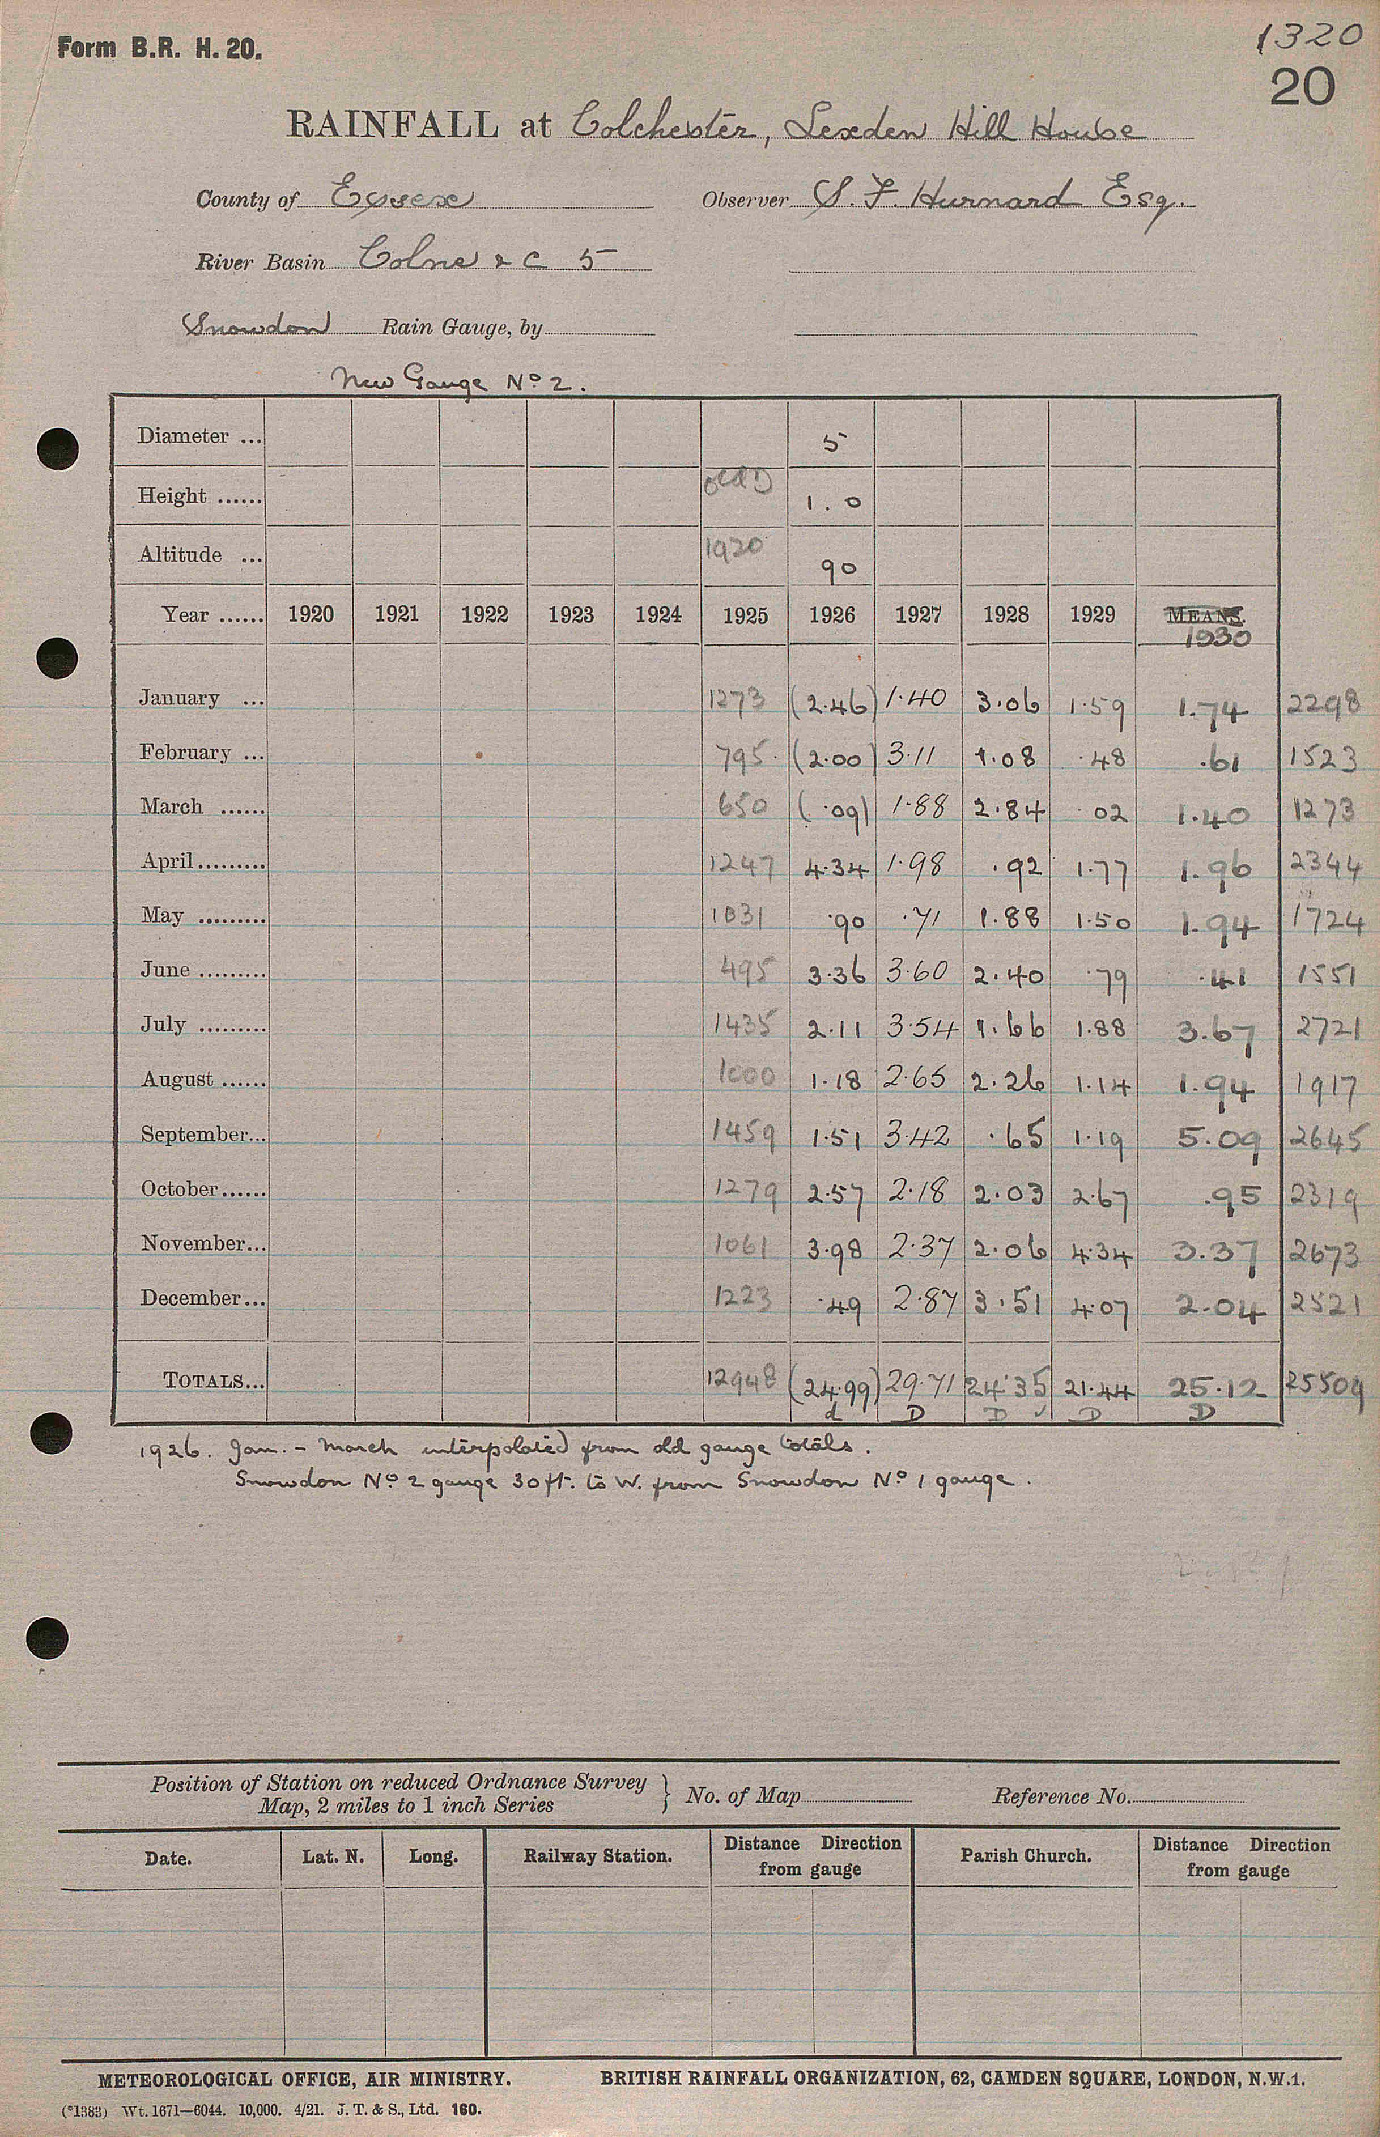 Form B.R. H. 20.
1320
20
RAINFALL at Colchester, Lexden Hill House
County of Essex Observer S. F. Hurnard Esq.
River Basin Colne & C 5
Snowdon Rain Gauge, by
New Gauge No 2.
Diameter ... 5
Height ...... old D 1.0
Altitude ... 1920 90
Year ...... 1920 1921 1922 1923 1924 1925 1926 1927 1928 1929 MEANS. 1930
January ... 1273 (2.46) 1.40 3.06 1.59 1.74 2298
February ... 795 (2.00) 3.11 1.08 .48 .61 1523
March ...... 650 (.09) 1.88 2.84 .02 1.40 1273
April......... 1247 4.34 1.98 .92 1.77 1.96 2344
May ......... 1031 .90 .71 1.88 1.50 1.94 1724
June ......... 495 3.36 3.60 2.40 .79 .41 1551
July ......... 1435 2.11 3.54 1.66 1.88 3.67 2721
August ...... 1000 1.18 2.65 2.26 1.14 1.94 1917
September... 1459 1.51 3.42 .65 1.19 5.09 2645
October...... 1279 2.57 2.18 2.03 2.67 .95 2319
November... 1061 3.98 2.37 2.06 4.34 3.37 2673
December... 1223 .49 2.87 3.51 4.07 2.04 2521
TOTALS... 12948 (24.99) 29.71 24.35 21.44 25.12 25509
d D D ✓ D D
1926. Jan. - March interpolated from old gauge totals.
Snowdon No 2 gauge 30 ft. to W. from Snowdon No 1 gauge.
Position of Station on reduced Ordnance Survey Map, 2 miles to 1 inch Series } No. of Map Reference No.
Date. Lat. N. Long. Railway Station. Distance Direction from gauge Parish Church. Distance Direction from gauge
METEOROLOGICAL OFFICE, AIR MINISTRY. BRITISH RAINFALL ORGANIZATION, 62, CAMDEN SQUARE, LONDON, N.W.1.
(*1383) Wt. 1671—6044. 10,000. 4/21. J. T. & S., Ltd. 160.